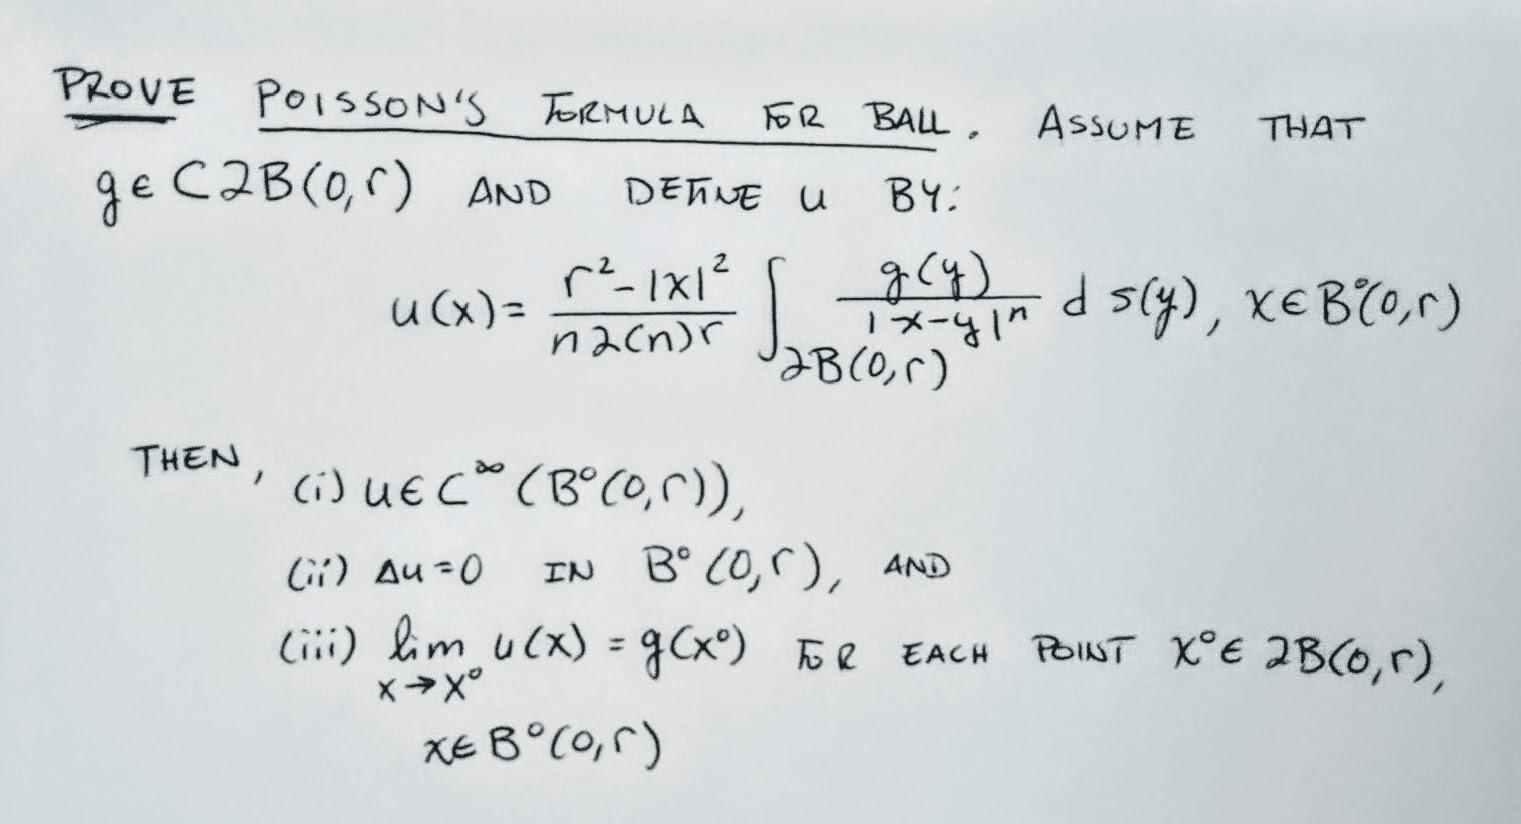 PROVE POISSON'S FORMULA FOR BALL. ASSUME THAT
g ∈ C∂B(0,r) AND DEFINE u BY:
u(x) = \frac{r² - |x|²}{n∂(n)r} ∫_{∂B(0,r)} \frac{g(y)}{|x-y|ⁿ} d s(y), x ∈ B°(0,r)
THEN, (i) u ∈ C^∞ (B°(0,r)),
(ii) Δu = 0 IN B°(0,r), AND
(iii) lim u(x) = g(x°) FOR EACH POINT x° ∈ ∂B(0,r),
x → x°
x ∈ B°(0,r)